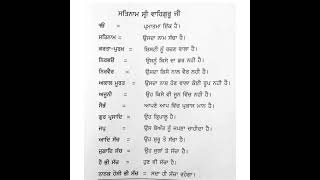 ਸਤਿਨਾਮ ਸ੍ਰੀ ਵਾਹਿਗੁਰੂ ਜੀ
ੴ = ਪ੍ਰਮਾਤਮਾ ਇੱਕ ਹੈ।
ਸਤਿਨਾਮ = ਉਸਦਾ ਨਾਮ ਸੱਚਾ ਹੈ।
ਕਰਤਾ-ਪੁਰਖ = ਸ੍ਰਿਸ਼ਟੀ ਨੂੰ ਰਚਣ ਵਾਲਾ ਹੈ।
ਨਿਰਭਉ = ਉਸਨੂੰ ਕਿਸੇ ਦਾ ਡਰ ਨਹੀਂ ਹੈ।
ਨਿਰਵੈਰ = ਉਸਦਾ ਕਿਸੇ ਨਾਲ ਵੈਰ ਨਹੀਂ ਹੈ।
ਅਕਾਲ ਮੂਰਤ = ਉਸਦਾ ਨਾਸ਼ ਹੋਣ ਵਾਲਾ ਕੋਈ ਰੂਪ ਨਹੀਂ ਹੈ।
ਅਜੂਨੀ = ਉਹ ਕਿਸੇ ਵੀ ਜੂਨ ਵਿੱਚ ਨਹੀਂ ਹੈ।
ਸੈਭੰ = ਆਪਣੇ ਆਪ ਵਿੱਚ ਪ੍ਰਕਾਸ਼ ਮਾਨ ਹੈ।
ਗੁਰ ਪ੍ਰਸਾਦਿ = ਉਹ ਕ੍ਰਿਪਾਲੂ ਹੈ।
ਜਪੁ = ਉਸ ਬੇਅੰਤ ਨੂੰ ਜਪਣਾ ਚਾਹੀਦਾ ਹੈ।
ਆਦਿ ਸੱਚ = ਉਹ ਸ਼ੁਰੂ ਤੋਂ ਸੱਚਾ ਹੈ।
ਜੁਗਾਦਿ ਸੱਚ = ਉਹ ਜੁਗਾਂ ਤੋਂ ਸੱਚਾ ਹੈ।
ਹੈ ਭੀ ਸੱਚ = ਹੁਣ ਵੀ ਸੱਚਾ ਹੈ।
ਨਾਨਕ ਹੋਸੀ ਭੀ ਸੱਚ = ਸਦਾ ਹੀ ਸੱਚਾ ਰਹੇਗਾ।